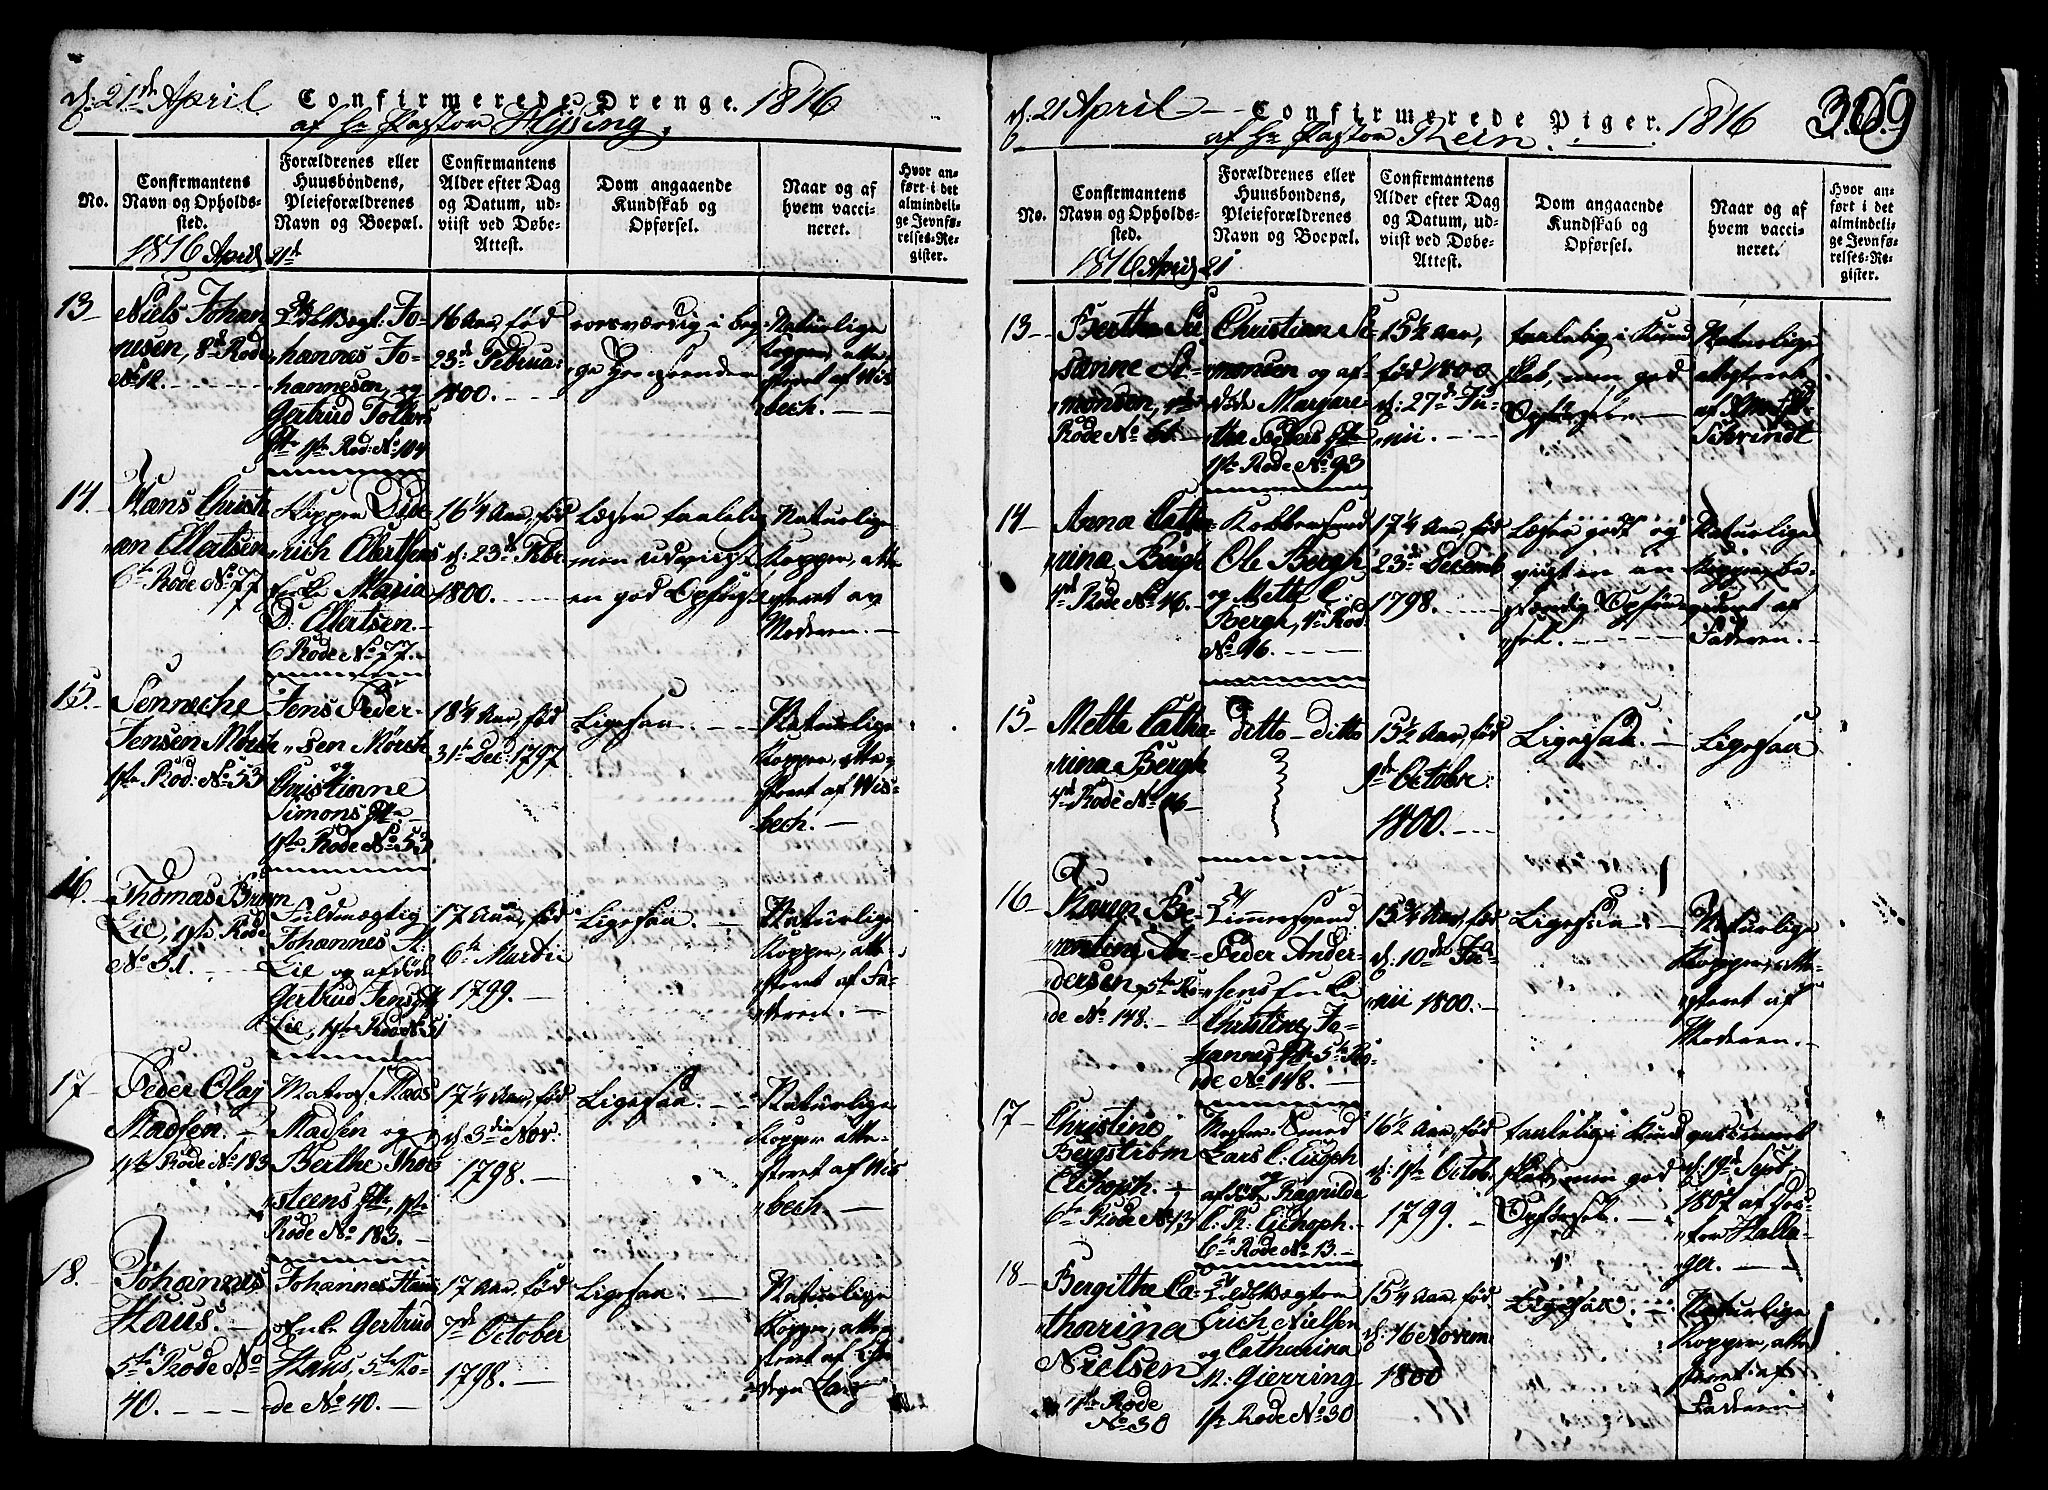 d: 21de April Confirmerede Drenge. 1816
af Hr Pastor Hysing.
No.
Confirmantens Navn og Opholdssted.
Forældrenes eller Huusbondens, Pleieforældrenes Navn og Boepæl.
Confirmantens Alder efter Dag og Datum, udviist ved Døbe-Attest.
Dom angaaende Kundskab og Opførsel.
Naar og af hvem vaccineret.
Hvor anført i det almindelige Jevnførelses-Register.
1816 April 21d
13 -
Niels Johan
nesen, 8de Rode
No 12.
Johannes Jo-
hannesen og
Gertrud
1ste Rod: No 104
16 Aar, født
23d Februar
1800.
Naturlige
Kopper, atte-
steret af Wis
bech.
14.
Hans Christi
an Ellertsen
6te Rode No 77
Skipper Died
rich Ellertsens
Enke Maria
D: Ellertsen.
6 Rode No 77.
16 1/4 Aar, født
d: 23d Febr
1800.
Læser taalelig
men udviist
en god Opførsel
Naturlige
Kopper, atte-
steret av
Moderen.
15.
Senneche
Jensen Mørch
1ste Rod: No 53
Jens Peder-
sen Mørch
og
Christianne
Simons
1ste Rode No 53
18 1/4 Aar, født
31te Dec: 1797
Ligesaa.
Naturlige
Kopper, atte-
steret af Wis-
bech.
16
Thomas Bruun
Lie, 1ste Rode
No 51.
Fuldmægtig
Johannes A:
Lie og afdøde
Gertrud Jens
Lie, 1ste Rode No 51
17 Aar, født
6te Martii
1799.
Ligesaa.
Naturlige
Kopper, atte-
steret af Fa-
deren.
17
Peder Olaj
Madsen.
1ste Rode No 183
Matros Mads
Madsen og
Berthe Thor
steens 1ste
Rode No 183.
17 1/4 Aar, født
d: 3die Nov:
1798.
Ligesaa.
Naturlige
Kopper atte-
steret af Wis
bech.
18.
Johannes
Haus.
5te Rode No
40.
Johannes Haus
Enke Gertrud
Haus, 5te Ro-
de No 40.
17 Aar, født
7de October
1798.
Ligesaa.
Naturlige
Kopper, atte-
steret af
d: 21 April - Confirmerede Piger. 1816 309
af Hr Pastor Rein.
No.
Confirmantens Navn og Opholdssted.
Forældrenes eller Huusbondens, Pleieforældrenes Navn og Boepæl.
Confirmantens Alder efter Dag og Datum, udviist ved Døbe-Attest.
Dom angaaende Kundskab og Opførsel.
Naar og af hvem vaccineret.
Hvor anført i det almindelige Jevnførelses-Register.
1816 April 21
13 -
Berthe Su
sanne Si-
monsen,
Rode No 61.
Christian Si-
monsen og af-
døde Margre-
tha
1ste Rode No 93
15 1/2 Aar,
født 1800
d: 27de Ju-
nii.
taalelig i Kund
skab, men god
Opførsel
Naturlige
attesteret
af
Schvindt
14 -
Anna Catha
rina Bergh
4de Rode No 46.
Ole Bergh
og Mette C:
Bergh,
No 96.
17 1/4 Aar, født
23de Decemb
1798.
Læser godt og
viist en an
stændig Opfør
sel.
Naturlige
Kopper,
af
Faderen.
15 -
Mette Catha-
rina Bergh
4de Rode No
ditto - ditto
15 1/2 Aar, født
9de October
1800.
Ligesaa.
Ligesaa
16 -
Karen Be-
rentine An-
dersen, 5te Ro-
de No 148.
Timmersvend
Peder Ander-
sens Enke
Christine Jo-
hannes 5te Ro-
de No 148.
15 3/4 Aar, født
d: 10de Ju
nii 1800.
Ligesaa
Naturlige
Kopper, atte-
steret af
Moderen.
17 -
Christine
Bergstrøm
Eichoph.
6te Rode No 13
Mester Smed
Lars C: Eigoph
Ragnilde
C: R: Eichoph.
6te Rode No 13.
16 1/2 Aar, født
d: 1ste Octob.
1799.
taalelig i Kund
skab, men god
Opførsel.
vaccineret
d: 19de Sept.
1807 af Doc-
tor Halla-
ger.
18 -
Bergithe Ca
tharina
Nielsen
1ste Rode
No 30
Erich Nielsen
og Catharina
N: Gierring
1ste Rode No 30
15 1/4 Aar, født
d: 16 Novem.
1800
Ligesaa.
Naturlige
Kopper, atte
steret af
Faderen